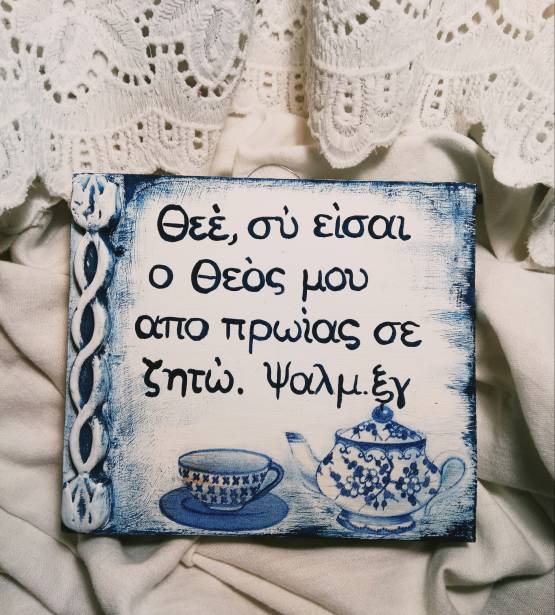 Θεὲ, σὺ εἰσαι
ο Θεὸς μου
απο πρωὶας σε
ζητὼ. Ψαλμ.ξγ